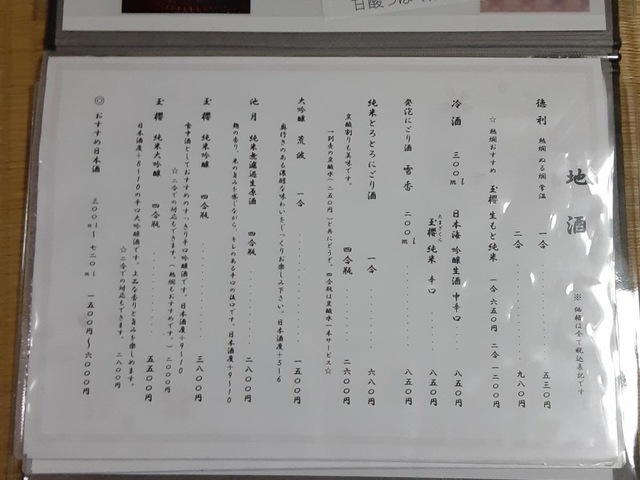 地酒
※ 価格は全て税込表記です
徳利 熱燗 ぬる燗 常温 一合 五三〇円
二合 九八〇円
☆ 熱燗おすすめ 玉櫻 生もと純米 一合 六五〇円 二合 一二〇〇円
冷酒 三〇〇ml 日本海 吟醸生酒 中辛口 八五〇円
玉櫻 純米 辛口 八五〇円
たまざくら
発泡にごり酒 雪香 二〇〇ml 八五〇円
純米とろとろにごり酒 一合 六八〇円
四合瓶 二六〇〇円
炭酸割りも美味です。
一割売の炭酸水(二五〇円)と共にどうぞ。四合瓶は炭酸水一本サービス☆
大吟醸 荒波 一合 一五〇〇円
奥行きのある濃醇な味わいをじっくりお楽しみ下さい。日本酒度+5～6
池月 純米無濾過生原酒 四合瓶 二八〇〇円
麹の香り、米の旨みを感じながら、キレのある辛口の銘酒です。日本酒度+9～10
玉櫻 純米吟醸 四合瓶 三八〇〇円
食中酒としておすすめのすっきり辛口吟醸酒です。日本酒度+9～10
☆二合での対応もできます。(熱燗もおすすめです。) 二〇〇〇円
玉櫻 純米大吟醸 四合瓶 五五〇〇円
日本酒度+8～10の辛口大吟醸酒です。上品な香りと旨みを楽しめます。
☆二合での対応もできます。 二八〇〇円
◎ おすすめ日本酒 三〇〇ml～七二〇ml 一五〇〇円～六〇〇〇円